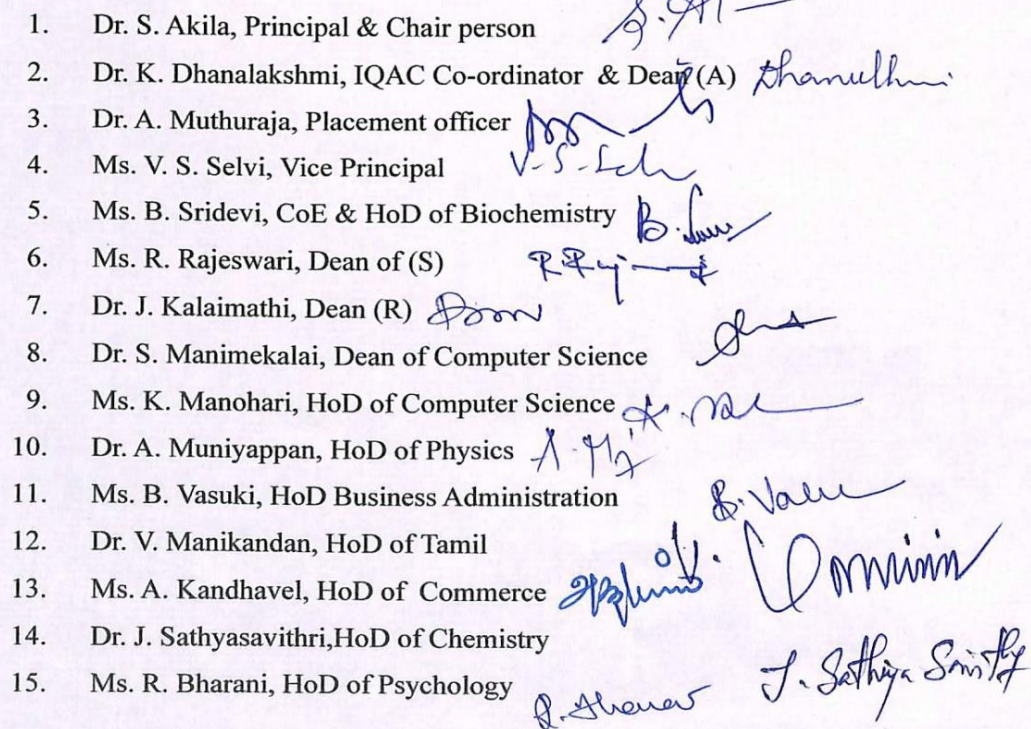 1. Dr. S. Akila, Principal & Chair person
2. Dr. K. Dhanalakshmi, IQAC Co-ordinator & Dean (A)
3. Dr. A. Muthuraja, Placement officer
4. Ms. V. S. Selvi, Vice Principal
5. Ms. B. Sridevi, CoE & HoD of Biochemistry
6. Ms. R. Rajeswari, Dean of (S)
7. Dr. J. Kalaimathi, Dean (R)
8. Dr. S. Manimekalai, Dean of Computer Science
9. Ms. K. Manohari, HoD of Computer Science
10. Dr. A. Muniyappan, HoD of Physics
11. Ms. B. Vasuki, HoD Business Administration
12. Dr. V. Manikandan, HoD of Tamil
13. Ms. A. Kandhavel, HoD of Commerce
14. Dr. J. Sathyasavithri,HoD of Chemistry
15. Ms. R. Bharani, HoD of Psychology